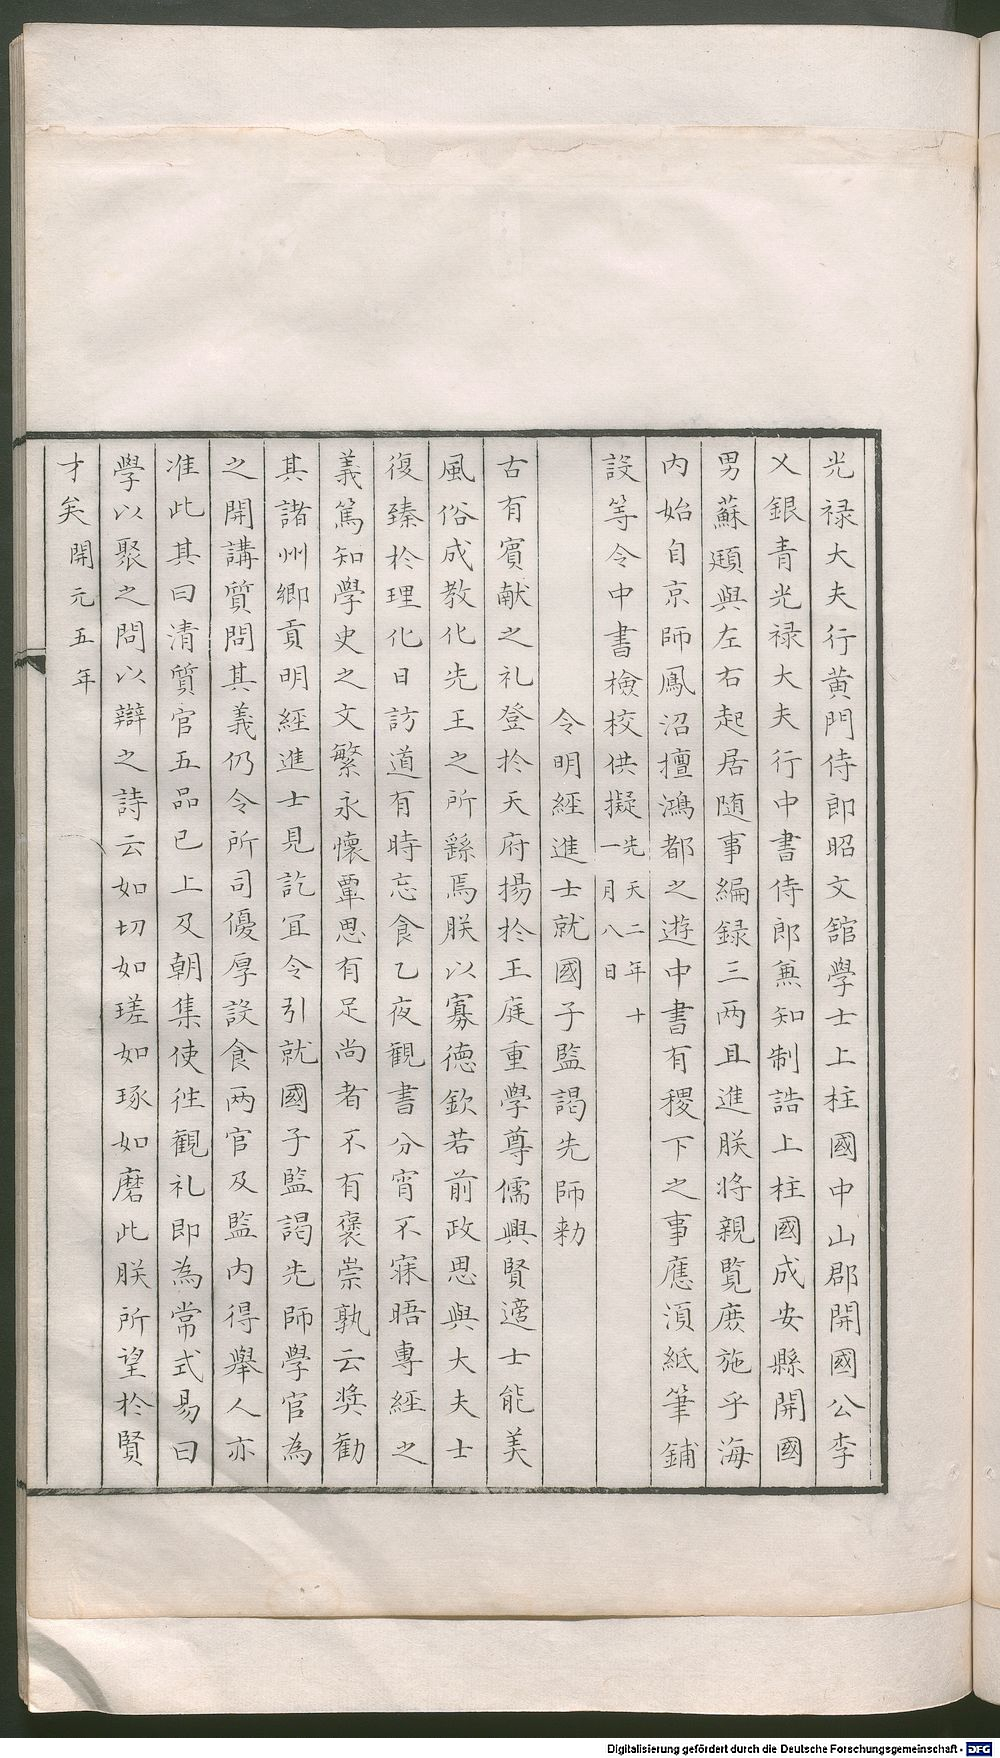 光禄大夫行黄門侍郎昭文舘學士上柱國中山郡開國公李
乂銀青光禄大夫行中書侍郎兼知制誥上柱國成安縣開國
男蘇頲與左右起居随事編録三两且進朕将親覧庶施乎海
内始自京師鳳沼擅鴻都之遊中書有稷下之事應湏紙筆鋪
設等令中書檢校供擬先天二年十一月八日
令明經進士就國子監謁先師勑
古有賓献之礼登於天府揚於王庭重學尊儒興賢適士能美
風俗成教化先王之所繇焉朕以寡德欽若前政思與大夫士
復臻於理化日訪道有時忘食乙夜觀書分宵不寐晤專經之
義篤知學史之文繁永懷覃思有足尚者不有褒崇孰云奨勸
其諸州鄉貢明經進士見訖冝令引就國子監謁先師學官為
之開講質問其義仍令所司優厚設食两官及監内得舉人亦
准此其日清質官五品已上及朝集使徃觀礼即為常式易曰
學以聚之問以辯之詩云如切如瑳如琢如磨此朕所望於賢
才矣開元五年
Digitalisierung gefördert durch die Deutsche Forschungsgemeinschaft - DFG